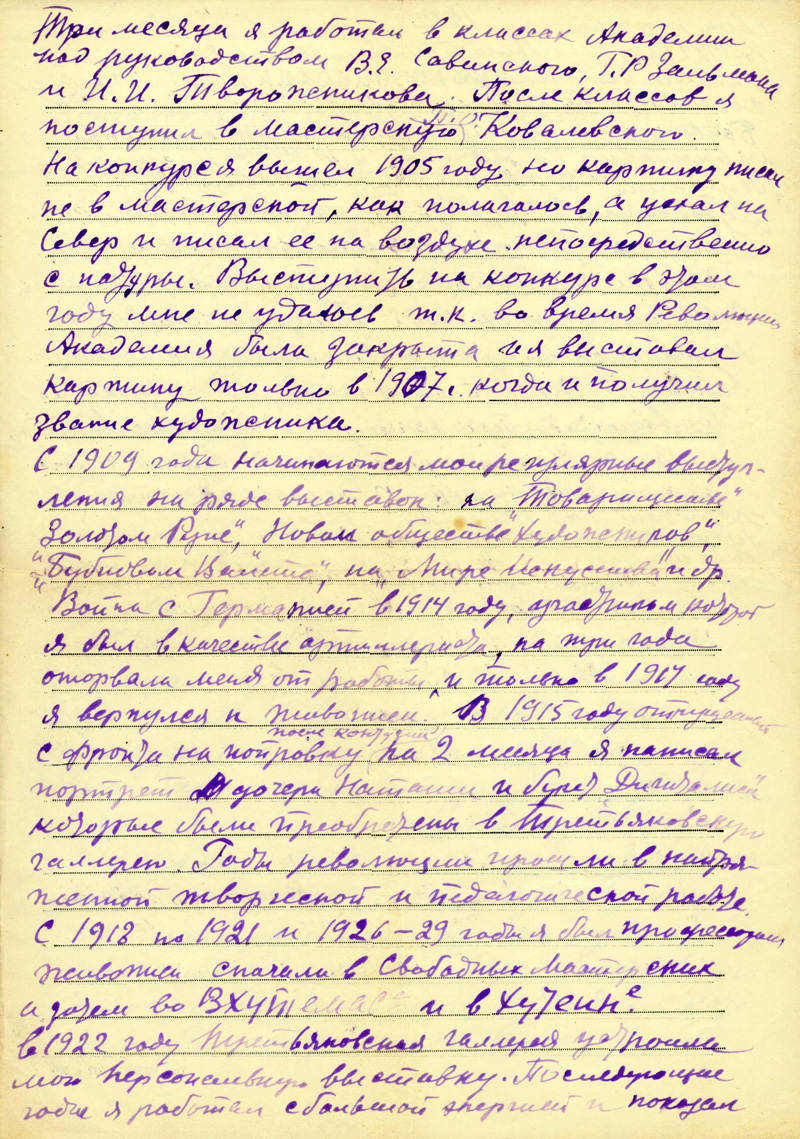 Три месяца я работал в классах Академии
под руководством В.Е. Савинского, Г.Р Зальмана
и И.И. Творожникова. После классов я
поступил в мастерскую П.О. Ковалевского.
На конкурс я вышел 1905 году но картину писал
не в мастерской, как полагалось, а уехал на
Север и писал ее на воздухе непосредственно
с натуры. Выступить на конкурс в этом
году мне не удалось т.к. во время Революции
Академия была закрыта и я выставил
картину только в 1907 г. когда и получил
звание художника.
С 1909 года начинаются мои регулярные выступ-
ления на ряде выставок: на "Товариществе"
Золотом Руне", Новом обществе "Художников",
"Бубновом Валете", на "Мире Искусства" и др.
Война с Германией в 1914 году, участником которой
я был в качестве артиллериста, на три года
оторвала меня от работы, и только в 1917 году
я вернулся к живописи. В 1915 году отпущенный
после контузии
с фронта на поправку на 2 месяца я написал
портрет дочери Наташи и букет "Дигиталисы"
которые были преобретены в Третьяковскую
галлерею. Годы революции прошли в напря-
женной творческой и педагогической работе.
С 1918 по 1921 и 1926–29 годы я был профессором
живописи сначала в Свободных Мастерских
а затем во Вхутемасе и в Хутеине.
в 1922 году Третьяковская галлерея устроила
мою персональную выставку. Последующие
годы я работал с большой энергией и показал